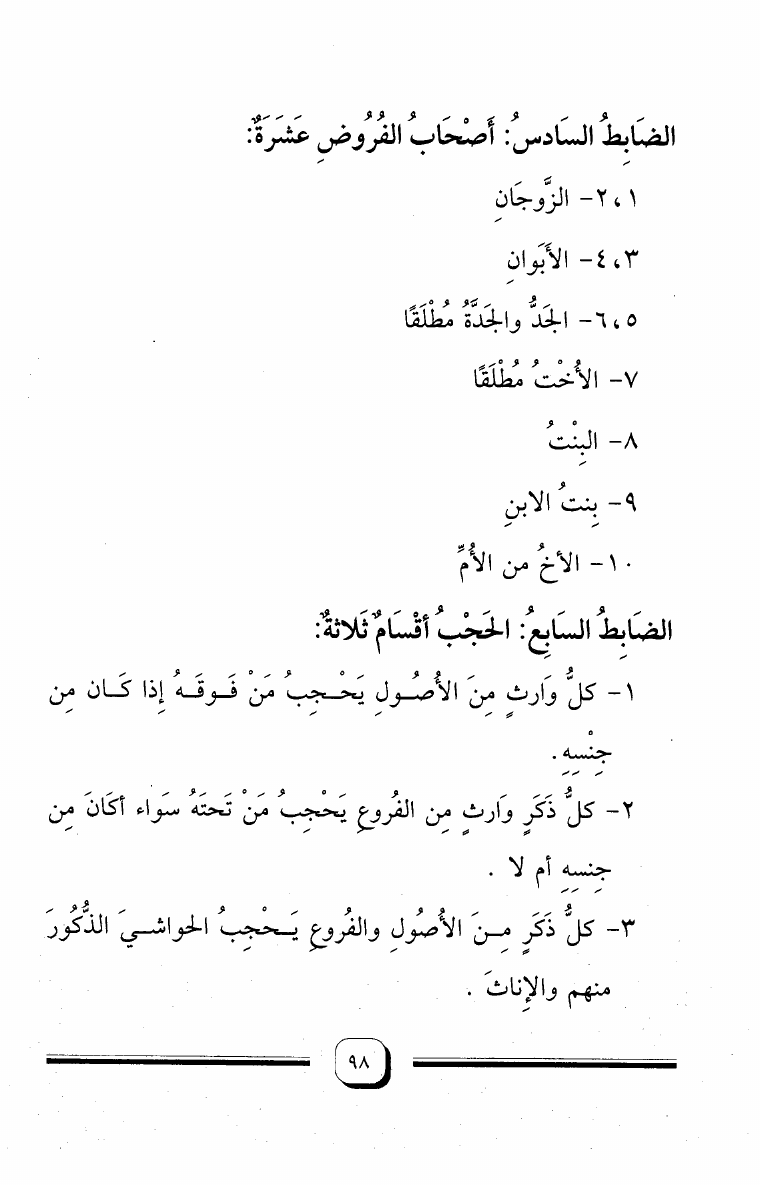 الضَابِطُ السَادسُ: أَصْحَابُ الفُرُوضِ عَشَرَةٌ:
١،٢- الزَّوجَانِ
٣،٤- الأَبَوانِ
٥،٦- الجَدُّ والجَدَّةُ مُطْلَقًا
٧- الأُخْتُ مُطْلَقًا
٨- البِنْتُ
٩- بِنتُ الابنِ
١٠- الأخُ من الأُمِّ
الضَابِطُ السَابِعُ: الحَجْبُ أقْسَامٌ ثَلاثةٌ:
١- كلُّ وَارثٍ مِنَ الأُصُولِ يَحْجِبُ مَنْ فَوقَهُ إذا كَان مِن
جِنْسِهِ.
٢- كلُّ ذَكَرٍ وَارثٍ مِن الفُروعِ يَحْجِبُ مَنْ تَحتَهُ سَواء أكَانَ مِن
جِنسِهِ أم لا .
٣- كلُّ ذَكَرٍ مِنَ الأُصُولِ والفُروعِ يَحْجِبُ الحواشيَ الذُّكُورَ
منهم والإِناثَ .
٩٨